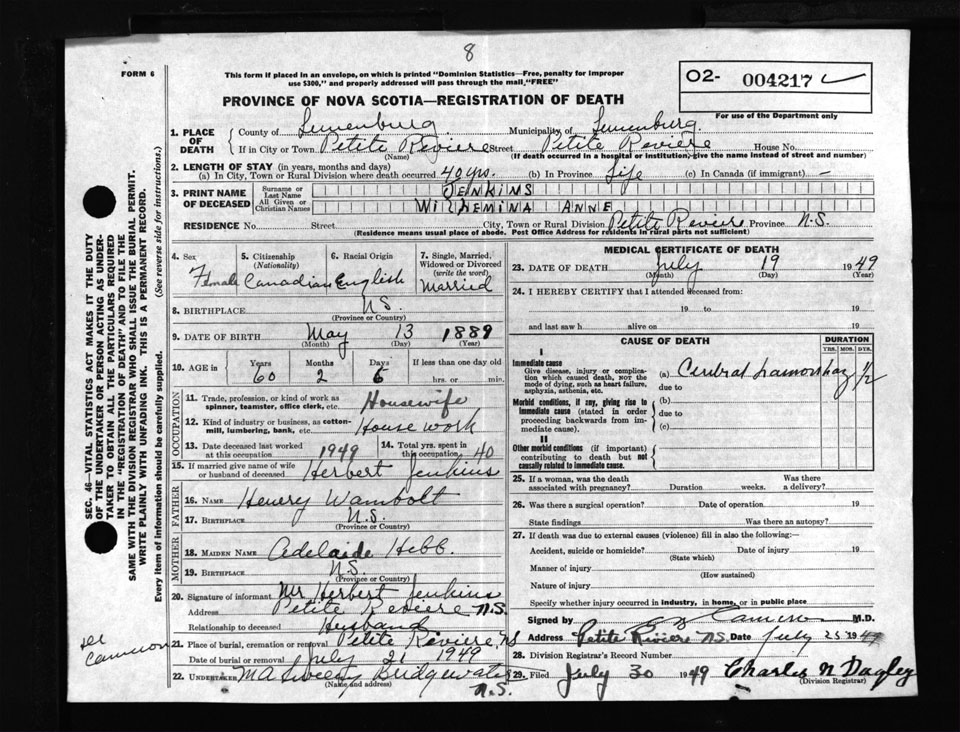 8
FORM 6
This form if placed in an envelope, on which is printed "Dominion Statistics—Free, penalty for improper
use $300," and properly addressed will pass through the mail "FREE"
O2- 004217
For use of the Department only
PROVINCE OF NOVA SCOTIA—REGISTRATION OF DEATH
1. PLACE OF DEATH
County of Lunenburg Municipality of Lunenburg
If in City or Town Petite Reviere Street Petite Reviere House No.
(Name) (If death occurred in a hospital or institution, give the name instead of street and number)
2. LENGTH OF STAY (in years, months and days)
(a) In City, Town or Rural Division where death occurred 40 yrs. (b) In Province Life (c) In Canada (if immigrant) —
3. PRINT NAME OF DECEASED
Surname or Last Name JENKINS
All Given or Christian Names WILHEMINA ANNE
RESIDENCE No. Street City, Town or Rural Division Petite Reviere Province N.S.
(Residence means usual place of abode. Post Office Address for residents in rural parts not sufficient)
4. Sex Female
5. Citizenship (Nationality) Canadian
6. Racial Origin English
7. Single, Married, Widowed or Divorced (write the word) Married
8. BIRTHPLACE N.S.
(Province or Country)
9. DATE OF BIRTH May 13 1889
(Month) (Day) (Year)
10. AGE in Years 60 Months 2 Days 6 If less than one day old hrs. or min.
OCCUPATION
11. Trade, profession, or kind of work as spinner, teamster, office clerk, etc. Housewife
12. Kind of industry or business, as cotton-mill, lumbering, bank, etc. House work
13. Date deceased last worked at this occupation 1949
14. Total yrs. spent in this occupation 40
15. If married give name of wife or husband of deceased Herbert Jenkins
FATHER
16. NAME Henery Wambolt
17. BIRTHPLACE N.S.
(Province or Country)
MOTHER
18. MAIDEN NAME Adelaide Hebb.
19. BIRTHPLACE N.S.
(Province or Country)
20. Signature of informant Mr Herbert Jenkins
Address Petite Reviere N.S.
Relationship to deceased Husband
21. Place of burial, cremation or removal Petite Reviere, NS
Date of burial or removal July 21 1949
22. UNDERTAKER MA Sweeny Bridgewater N.S.
(Name and address)
MEDICAL CERTIFICATE OF DEATH
23. DATE OF DEATH July 19 1949
(Month) (Day) (Year)
24. I HEREBY CERTIFY that I attended deceased from:
19 to 19
and last saw h alive on 19
CAUSE OF DEATH
DURATION
YRS. MOS. DYS.
I
Immediate cause
Give disease, injury or complication which caused death, NOT the mode of dying, such as heart failure, asphyxia, asthenia, etc.
(a) 1/2
due to
Morbid conditions, if any, giving rise to immediate cause (stated in order proceeding backwards from immediate cause).
(b)
due to
(c)
II
Other morbid conditions (if important) contributing to death but not causally related to immediate cause.
25. If a woman, was the death associated with pregnancy? Duration weeks. Was there a delivery?
26. Was there a surgical operation? Date of operation 19
State findings Was there an autopsy?
27. If death was due to external causes (violence) fill in also the following:—
Accident, suicide or homicide? Date of injury 19
(State which)
Manner of injury
(How sustained)
Nature of injury
Specify whether injury occurred in industry, in home, or in public place
Signed by Cameron M.D.
Address Petite Riviere N.S. Date July 25 1949
28. Division Registrar's Record Number
29. Filed July 30 1949 Charles N Dagley
(Division Registrar)
SEC. 46—VITAL STATISTICS ACT MAKES IT THE DUTY
OF THE UNDERTAKER OR PERSON ACTING AS UNDER-
TAKER TO OBTAIN ALL THE PARTICULARS REQUIRED
IN THE "REGISTRATION OF DEATH" AND TO FILE THE
SAME WITH THE DIVISION REGISTRAR WHO SHALL ISSUE THE BURIAL PERMIT.
WRITE PLAINLY WITH UNFADING INK. THIS IS A PERMANENT RECORD.
Every item of information should be carefully supplied. (See reverse side for instructions.)
Cameron